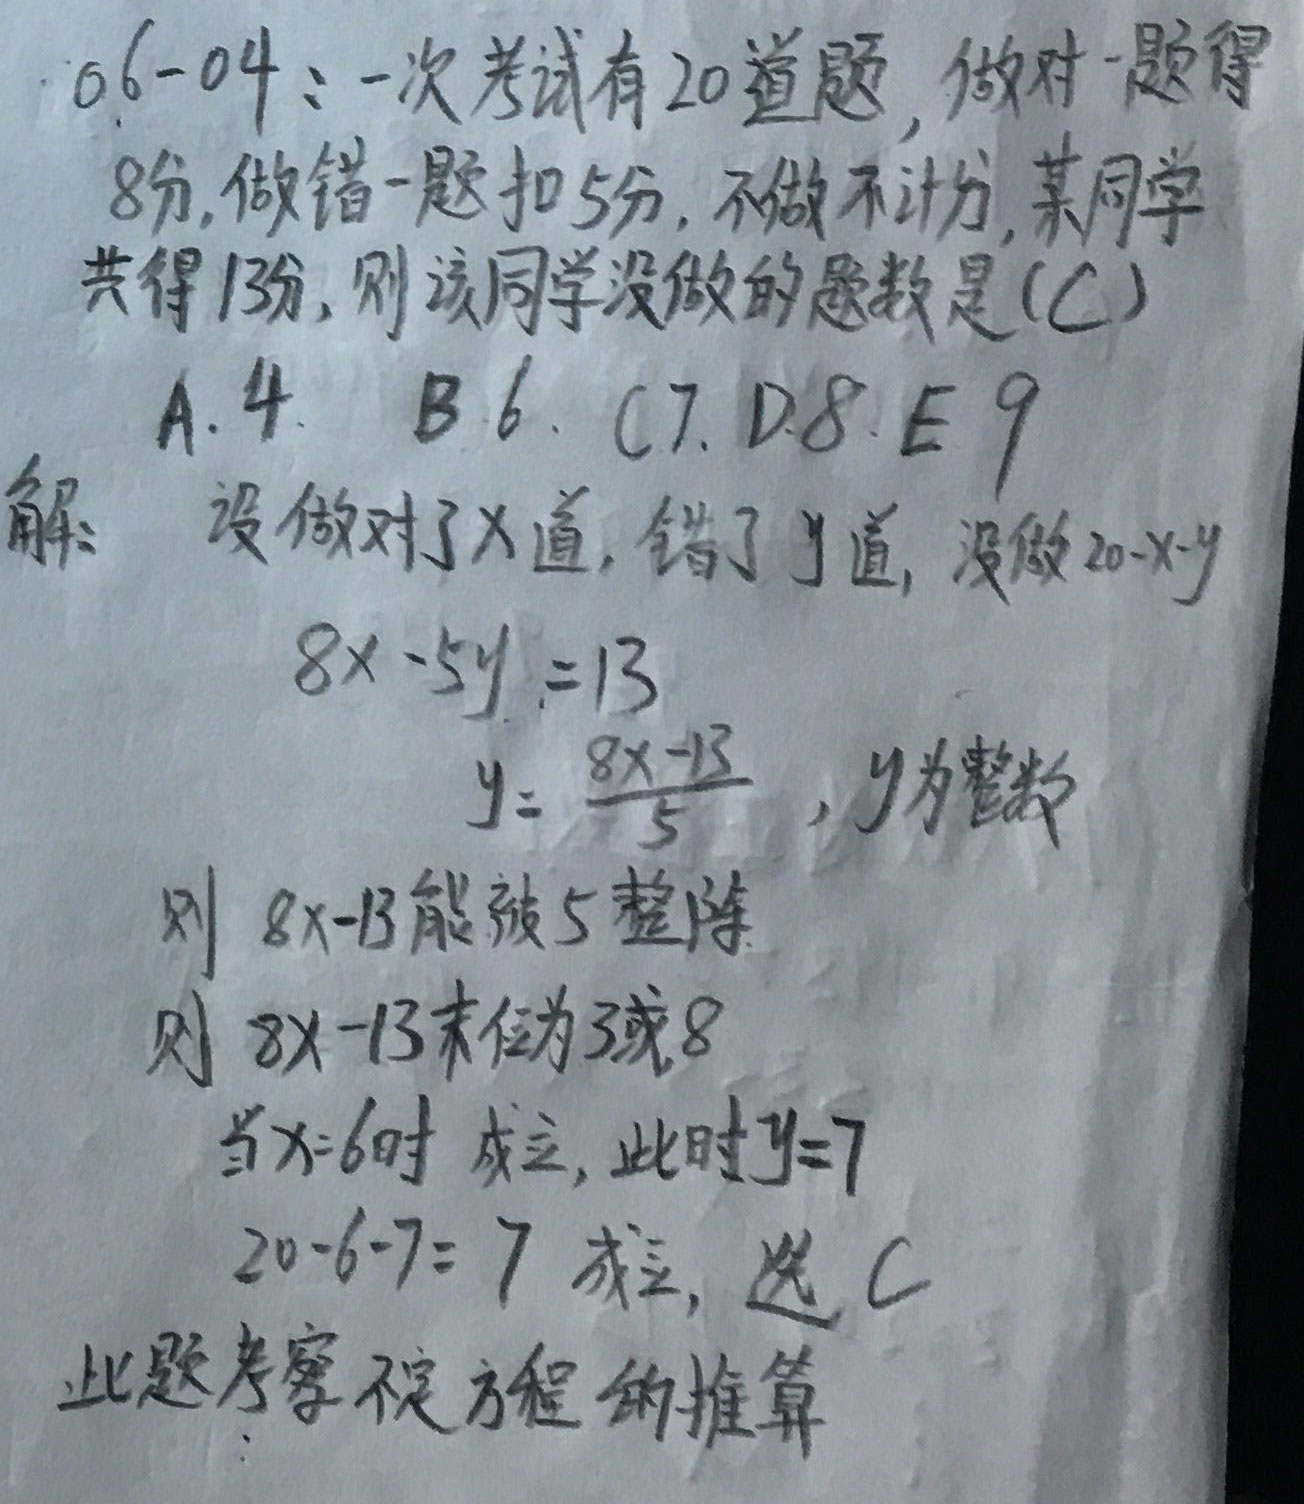 06-04：一次考试有20道题，做对一题得
8分，做错一题扣5分，不做不计分，某同学
共得13分，则该同学没做的题数是（C）
A.4. B.6. C7. D.8. E 9
解： 设做对了x道，错了y道，没做20-x-y
8x-5y=13
y=\frac{8x-13}{5}，y为整数
则 8x-13能被5整除
则 8x-13末位为3或8
当x=6时 成立，此时y=7
20-6-7=7 成立，选 C
此题考察不定方程的推算